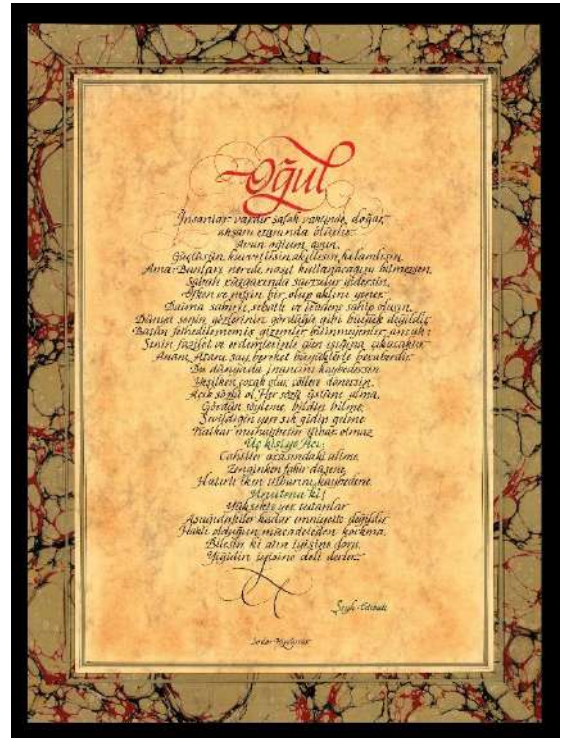 Oğul
İnsanlar vardır şafak vaktinde doğar,
akşam ezanında ölürler.
Avun oğlum avun.
Güçlüsün kuvvetlisin akıllısın kelamlısın.
Ama Bunları nerede nasıl kullanacağını bilmezsen
Sabah rüzgarında savrulur gidersin.
Öfken ve nefsin bir olup aklını yener.
Daima sabırlı, sebatlı ve iradene sahip olasın.
Dünya senin gözlerinin gördüğü gibi büyük değildir.
Bütün fethedilmemiş gizemler bilinmeyenler ancak
Senin fazilet ve erdemlerinle gün ışığına çıkacaktır.
Ananı, Atanı say, bereket büyüklerle beraberdir.
Bu dünyada inancını kaybedersen
Yeşilken çorak olur, çöllere dönersin.
Açık sözlü ol, Her sözü üstüne alma,
Gördün söyleme, bildin bilme.
Sevildiğin yere sık gidip gelme
Kalkar muhabbetin itibar olmaz
Üç kişiye Acı:
Cahiller arasındaki alime,
Zenginken fakir düşene,
Hatırlı iken itibarını kaybedene.
Unutma ki!
Yüksekte yer tutanlar
Aşağıdakiler kadar emniyette değildir
Haklı olduğun mücadeleden korkma.
Bilesin ki atın iyisine doru,
Yiğidin iyisine deli derler.
Şeyh Edebali